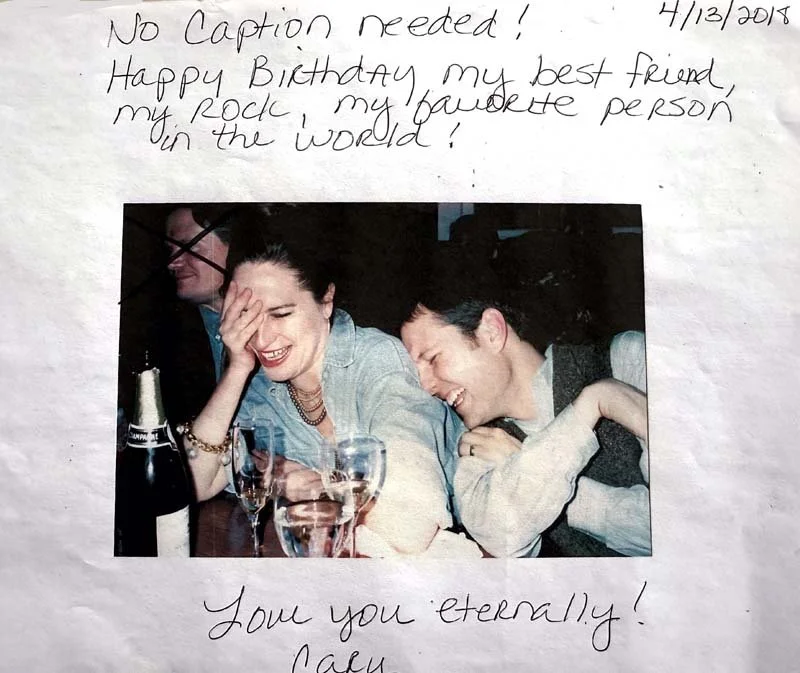 4/13/2018
No Caption needed!
Happy Birthday my best friend,
my Rock, my favorite person
in the world!
CHAMPAGNE
Love you eternally!
Cary